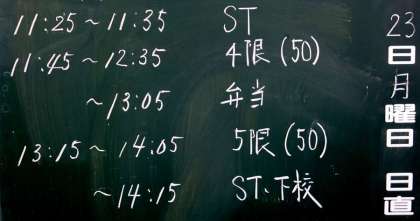 11:25～11:35 ST
11:45～12:35 4限(50)
～13:05 弁当
13:15～14:05 5限(50)
～14:15 ST、下校
23
日
月
曜
日
日
直